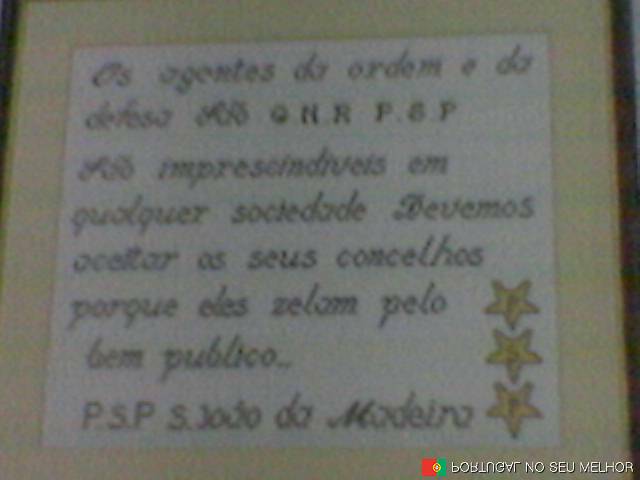 Os agentes da ordem e da
defesa São G.N.R P.S.P
São imprescindiveis em
qualquer sociedade Devemos
aceitar os seus concelhos
porque eles zelam pelo
bem publico...
P.S.P S.João da Madeira
P
S
P
PORTUGAL NO SEU MELHOR